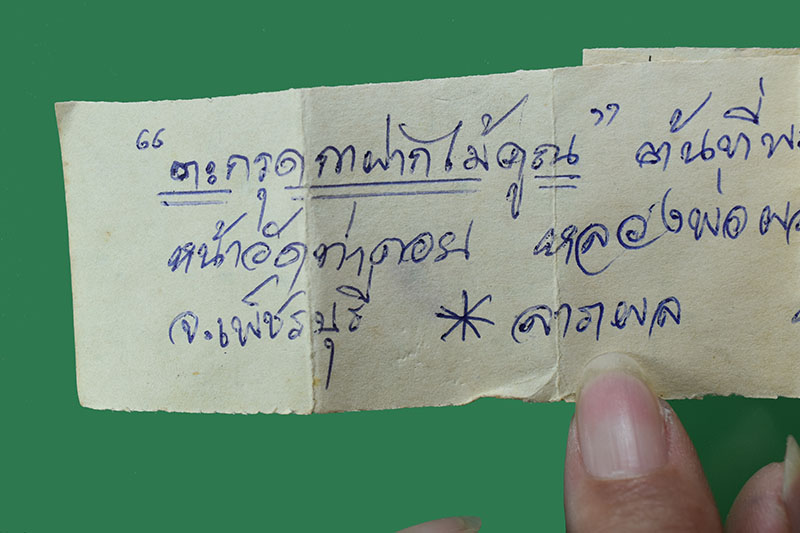 “ตะกรุดกาฝากไม้คูณ” ต้นที่พ
หน้าวัดท่าคอย หลวงพ่อผ
จ.เพ็ชรบุรี * ลาภผล